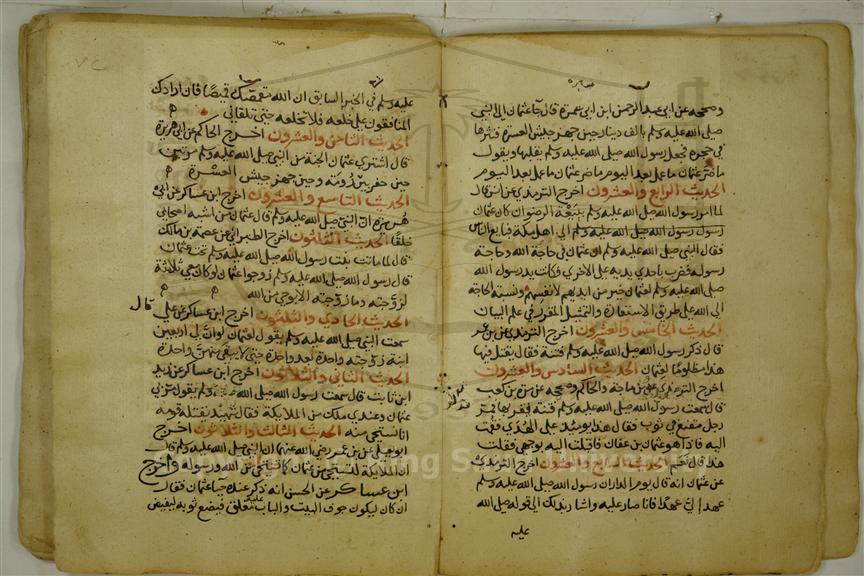 وصححه عن ابي عبد الرحمن ابن ابي عمرة قال جا عثمان الى النبي
صلى الله عليه وسلم بالف دينار حين جهز جيش العسرة فنثرها
في حجره فجعل رسول الله صلى الله عليه وسلم يقلبها ويقول
ما ضر عثمان ما عمل بعد اليوم ما ضر عثمان ما عمل بعد اليوم
الحديث الرابع والعشرون اخرج الترمذي عن انس قال
لما امر رسول الله صلى الله عليه وسلم ببيعة الرضوان كان عثمان
رسول رسول الله صلى الله عليه وسلم الى اهل مكة فبايع الناس
فقال النبي صلى الله عليه وسلم ان عثمان في حاجة الله وحاجة
رسوله فضرب باحدي يديه على الاخري فكانت يد رسول الله
صلى الله عليه وسلم لعثمان خير من ايديهم لانفسهم ونسبة الحاجة
الى الله على طريق الاستعارة والتمثيل المقرر في علم البيان
الحديث الخامس والعشرون اخرج الترمذي عن بن عمر
قال ذكر رسول الله صلى الله عليه وسلم فتنة فقال يقتل فيها
هذا مظلوما لعثمان الحديث السادس والعشرون
اخرج الترمذي بن ماجة والحاكم وصححه عن مرة بن كعب
قال سمعت رسول الله صلى الله عليه وسلم فتنة فقربها فمر
رجل مقنع في ثوب فقال هذا يومئذ على الهدي فقمت
اليه فاذا هو عثمان بن عفان فاقبلت اليه بوجهي فقلت
هذا قال نعم الحديث السابع والعشرون اخرج الترمذي
عن عثمان انه قال يوم الدار ان رسول الله صلى الله عليه وسلم
عهد الي عهدا فانا صابر عليه واشار بذلك الى قوله صلى الله
عليه
عليه وسلم في الخبر السابق ان الله يقمصك قميصا فان ارادك
المنافقون على خلعه فلا تخلعه حتى تلقاني
الحديث الثامن والعشرون اخرج الحاكم عن ابي هريرة
قال اشتري عثمان الجنة من النبي صلى الله عليه وسلم مرتين
حين حفر بير رومة وحين جهز جيش العسرة
الحديث التاسع والعشرون اخرج ابن عساكر عن ابي
هريرة ان النبي صلى الله عليه وسلم قال عثمان من اشبه اصحابي
خلقا الحديث الثلاثون اخرج الطبراني عن عصمة بن مالك
قال لما ماتت بنت رسول الله صلى الله عليه وسلم تحت عثمان
قال رسول الله صلى الله عليه وسلم زوجوا عثمان لو كان لي ثالثة
لزوجته وما زوجته الا بوحي من الله
الحديث الحادي والثلثون اخرج ابن عساكر عن علي قال
سمعت النبي صلى الله عليه وسلم يقول لعثمان لو ان لي اربعين
ابنة زوجته واحدة بعد واحدة حتى لا يبقى منهن واحدة
الحديث الثاني والثلاثون اخرج ابن عساكر عن زيد
ابن ثابت قال سمعت رسول الله صلى الله عليه وسلم يقول مر بي
عثمان وعندي ملك من الملايكة فقال شهيد يقتله قومه
انا نستحي منه الحديث الثالث والثلاثون اخرج
ابو يعلى عن بن عمر رضي الله عنهما ان النبي صلى الله عليه وسلم قال
ان الملايكة لتستحي من عثمان كما تستحي من الله ورسوله واخرج
ابن عساكر عن الحسن انه ذكر عنده حيا عثمان فقال
ان كان ليكون جوف البيت والباب عليه مغلق فيضع ثوبه ليفيض